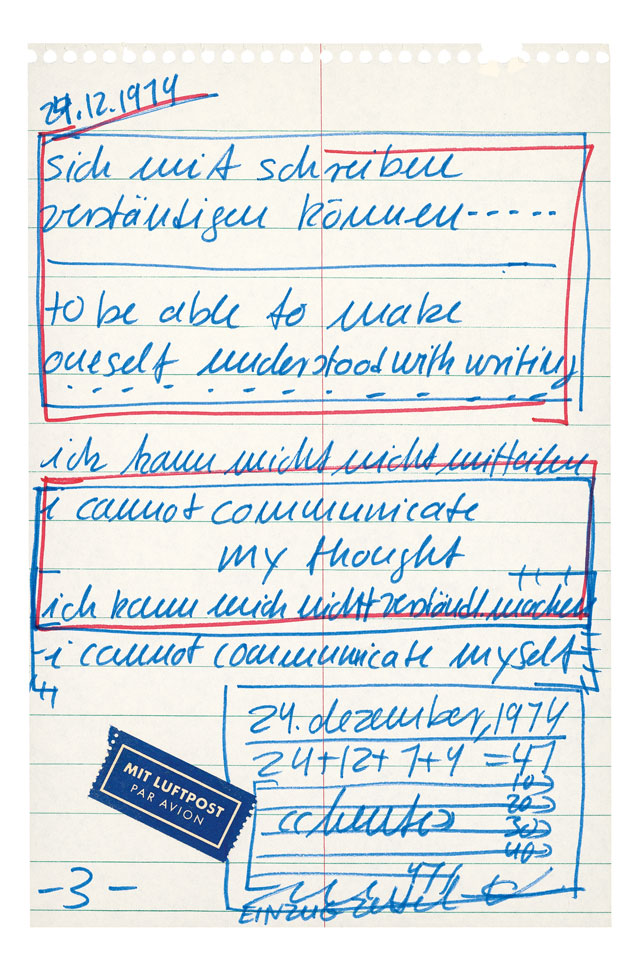 24.12.1974
sich mit schreiben
verständigen können-----
to be able to make
oneself understood with writing
ich kann nicht mitteilen
i cannot communicate
my thought
ich kann mich nicht verständl. machen
-i cannot communicate myself
24. dezember, 1974
24+12+7+4 =47
100
200
300
400
MIT LUFTPOST
PAR AVION
-3-
EINZUG